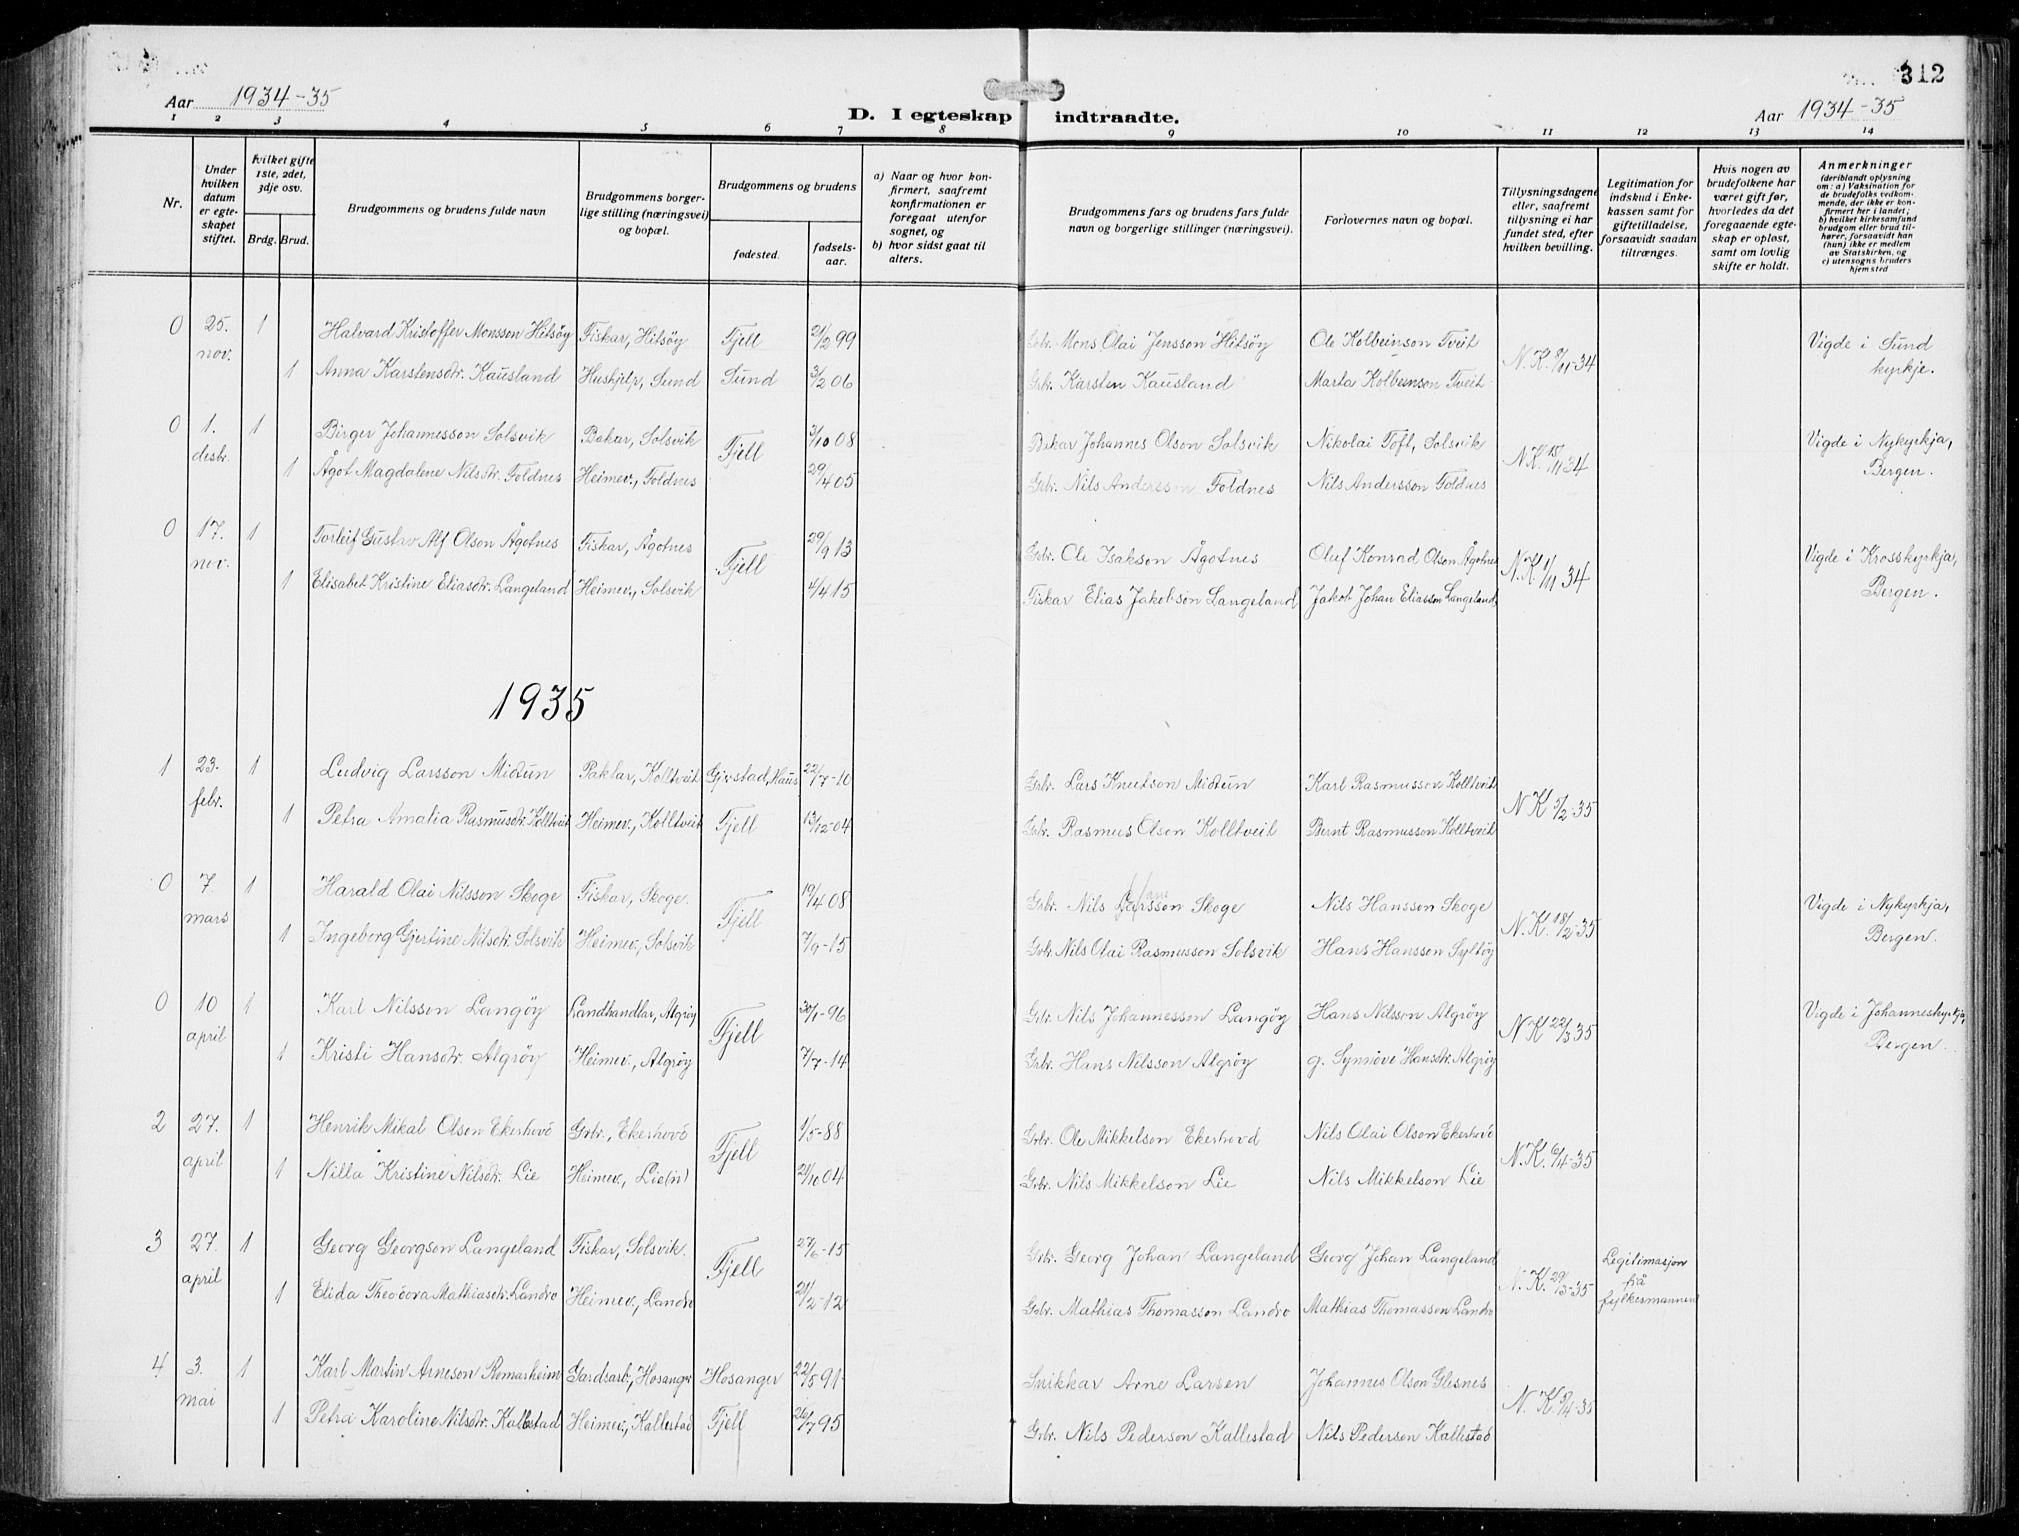 312
Aar 1934-35
D. I egteskap indtraadte.
Aar 1934-35
1 2 3 4 5 6 7 8 9 10 11 12 13 14
Nr.
Under hvilken datum er egteskapet stiftet.
Hvilket gifte 1ste, 2det, 3dje osv.
Brdg. Brud.
Brudgommens og brudens fulde navn
Brudgommens borgerlige stilling (næringsvei) og bopæl.
Brudgommens og brudens
fødested.
fødselsaar.
a) Naar og hvor konfirmert, saafremt konfirmationen er foregaat utenfor sognet, og
b) hvor sidst gaat til alters.
Brudgommens fars og brudens fars fulde navn og borgerlige stillinger (næringsvei).
Forlovernes navn og bopæl.
Tillysningsdagene eller, saafremt tillysning ei har fundet sted, efter hvilken bevilling.
Legitimation for indskud i Enkekassen samt for giftetilladelse, forsaavidt saadan tiltrænges.
Hvis nogen av brudefolkene har været gift før, hvorledes da det foregaaende egteskap er opløst, samt om lovlig skifte er holdt.
Anmerkninger (deriblandt oplysning om: a) Vaksination for de brudefolks vedkommende, der ikke er konfirmert her i landet; b) hvilket kirkesamfund brudgom eller brud tilhører, forsaavidt han (hun) ikke er medlem av Statskirken, og c) utensogns bruders hjemsted
0 25. nov. 1 Halvard Kristoffer Monsson Hitsøy Fiskar, Hitsøy Fjell 21/2 99 Grbr. Mons Olai Jensson Hitsøy Ole Kolbeinson Tveit N.K. 8/11-34 Vigde i Sund kyrkje.
1 Anna Karstensdtr. Kausland Hushjelp, Sund Sund 3/2 06 Grbr. Karsten Kausland Marta Kolbeinson Tveit
0 1. desbr. 1 Birger Johannesson Solsvik Bakar, Solsvik Fjell 3/10 08 Bakar Johannes Olson Solsvik Nikolai Toft, Solsvik N.K. 15/11 34 Vigde i Nykyrkja, Bergen.
1 Ågot Magdalene Nilsdtr. Foldnes Heimev., Foldnes 29/4 05 Grbr. Nils Andersson Foldnes Nils Andersson Foldnes
0 17. nov. 1 Torleif Gustav Alf Olson Ågotnes Fiskar, Ågotnes Fjell 29/9 13 Grbr. Ole Isakson Ågotnes Oluf Konrad Olson Ågotnes N.K. 1/11 34 Vigde i Krosskyrkja, Bergen.
1 Elisabet Kristine Eliasdtr. Langeland Heimev., Solsvik 4/4 15 Fiskar Elias Jakobson Langeland Jakob Johan Eliasson Langeland
1935
1 23. febr. 1 Ludvig Larsson Midtun Paktar, Kolltveit Gjerstad, Haus 22/7-10 Grbr. Lars Knutson Midtun Karl Rasmusson Kolltveit N.K. 5/2-35
1 Petra Amalia Rasmusdtr. Kolltveit Heimev., Kolltveit Fjell 13/12-04 Grbr. Rasmus Olson Kolltveit Bernt Rasmusson Kolltveit
0 7. mars 1 Harald Olai Nilsson Skoge Fiskar, Skoge. Fjell 19/4 08 Grbr. Nils Larsson Skoge Nils Hansson Skoge N.K. 18/2-35 Vigde i Nykyrkja, Bergen.
1 Ingeborg Gjertine Nilsdtr. Solsvik Heimev., Solsvik 7/9-15 Grbr. Nils Olai Rasmusson Solsvik Hans Hansson Syltøy
0 10 april 1 Karl Nilsson Langøy Landhandlar, Algrøy Fjell 30/1-96 Grbr. Nils Johannesson Langøy Hans Nilsson Algrøy N.K. 22/3 35 Vigde i Johanneskyrkja, Bergen.
1 Kristi Hansdtr. Algrøy Heimev., Algrøy 7/7-14 Grbr. Hans Nilsson Algrøy g. Synnøve Hansdtr. Algrøy
2 27. april 1 Henrik Mikal Olson Ekerhovd Grbr., Ekerhovd Fjell 1/5-88 Grbr. Ole Mikkelson Ekerhovd Nils Olai Olson Ekerhovd N.K. 6/4-35
1 Nilla Kristine Nilsdtr. Lie Heimev., Lie(n) 21/10 04 Grbr. Nils Mikkelson Lie Nils Mikkelson Lie
3 27. april 1 Georg Georgson Langeland Fiskar, Solsvik. Fjell 27/6-15 Grbr. Georg Johan Langeland Georg Johan Langeland N.K. 29/3-35 Legitimasjon frå fylkesmannen
1 Elida Theodora Mathiasdtr. Landro Heimev., Landro 21/2-12 Grbr. Mathias Thomasson Landro Mathias Thomasson Landro
4 3. mai 1 Karl Martin Arneson Romarheim Gardsarb., Hosanger Hosanger 22/5 91 Snikkar Arne Larsen Johannes Olson Glesnes N.K. 9/4-35
1 Petra Karoline Nilsdtr. Kallestad Heimev., Kallestad Fjell 26/7 95 Grbr. Nils Pederson Kallestad Nils Pederson Kallestad